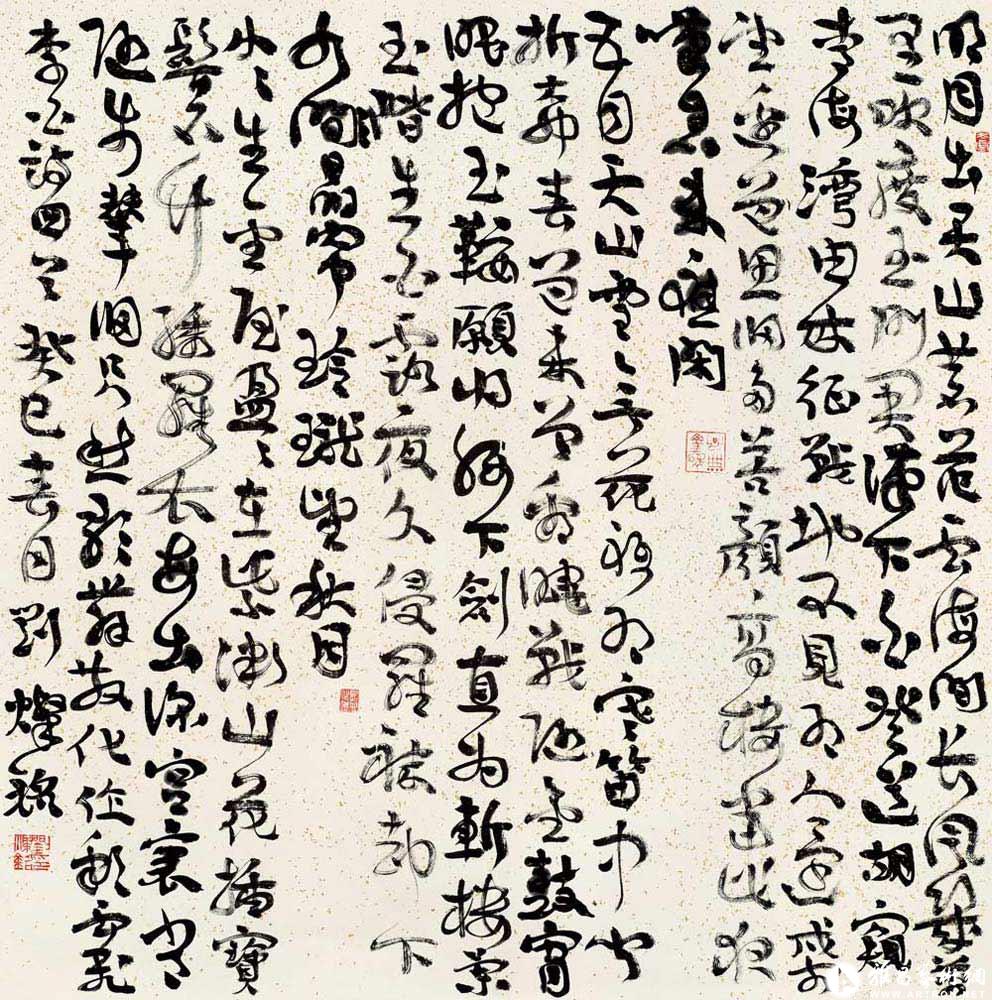 明月出天山蒼茫雲海間長風幾萬
里吹度玉門關漢下白登道胡窺
青海灣由來征戰地不見有人還戍客
望邊邑思歸多苦顏高樓當此夜
嘆息未應閑
五月天山雪無花祇有寒笛中聞
折柳春色未曾看曉戰隨金鼓宵
眠抱玉鞍願將腰下劍直為斬樓蘭
玉階生白露夜久侵羅襪卻下
水晶帘玲瓏望秋月
小小生金屋盈盈在紫微山花插寶
髻石竹繡羅衣每出深宮裏常
隨步輦歸只愁歌舞散化作彩雲飛
李白詩四首 癸巳春月 劉燦銘
雅昌藝術網